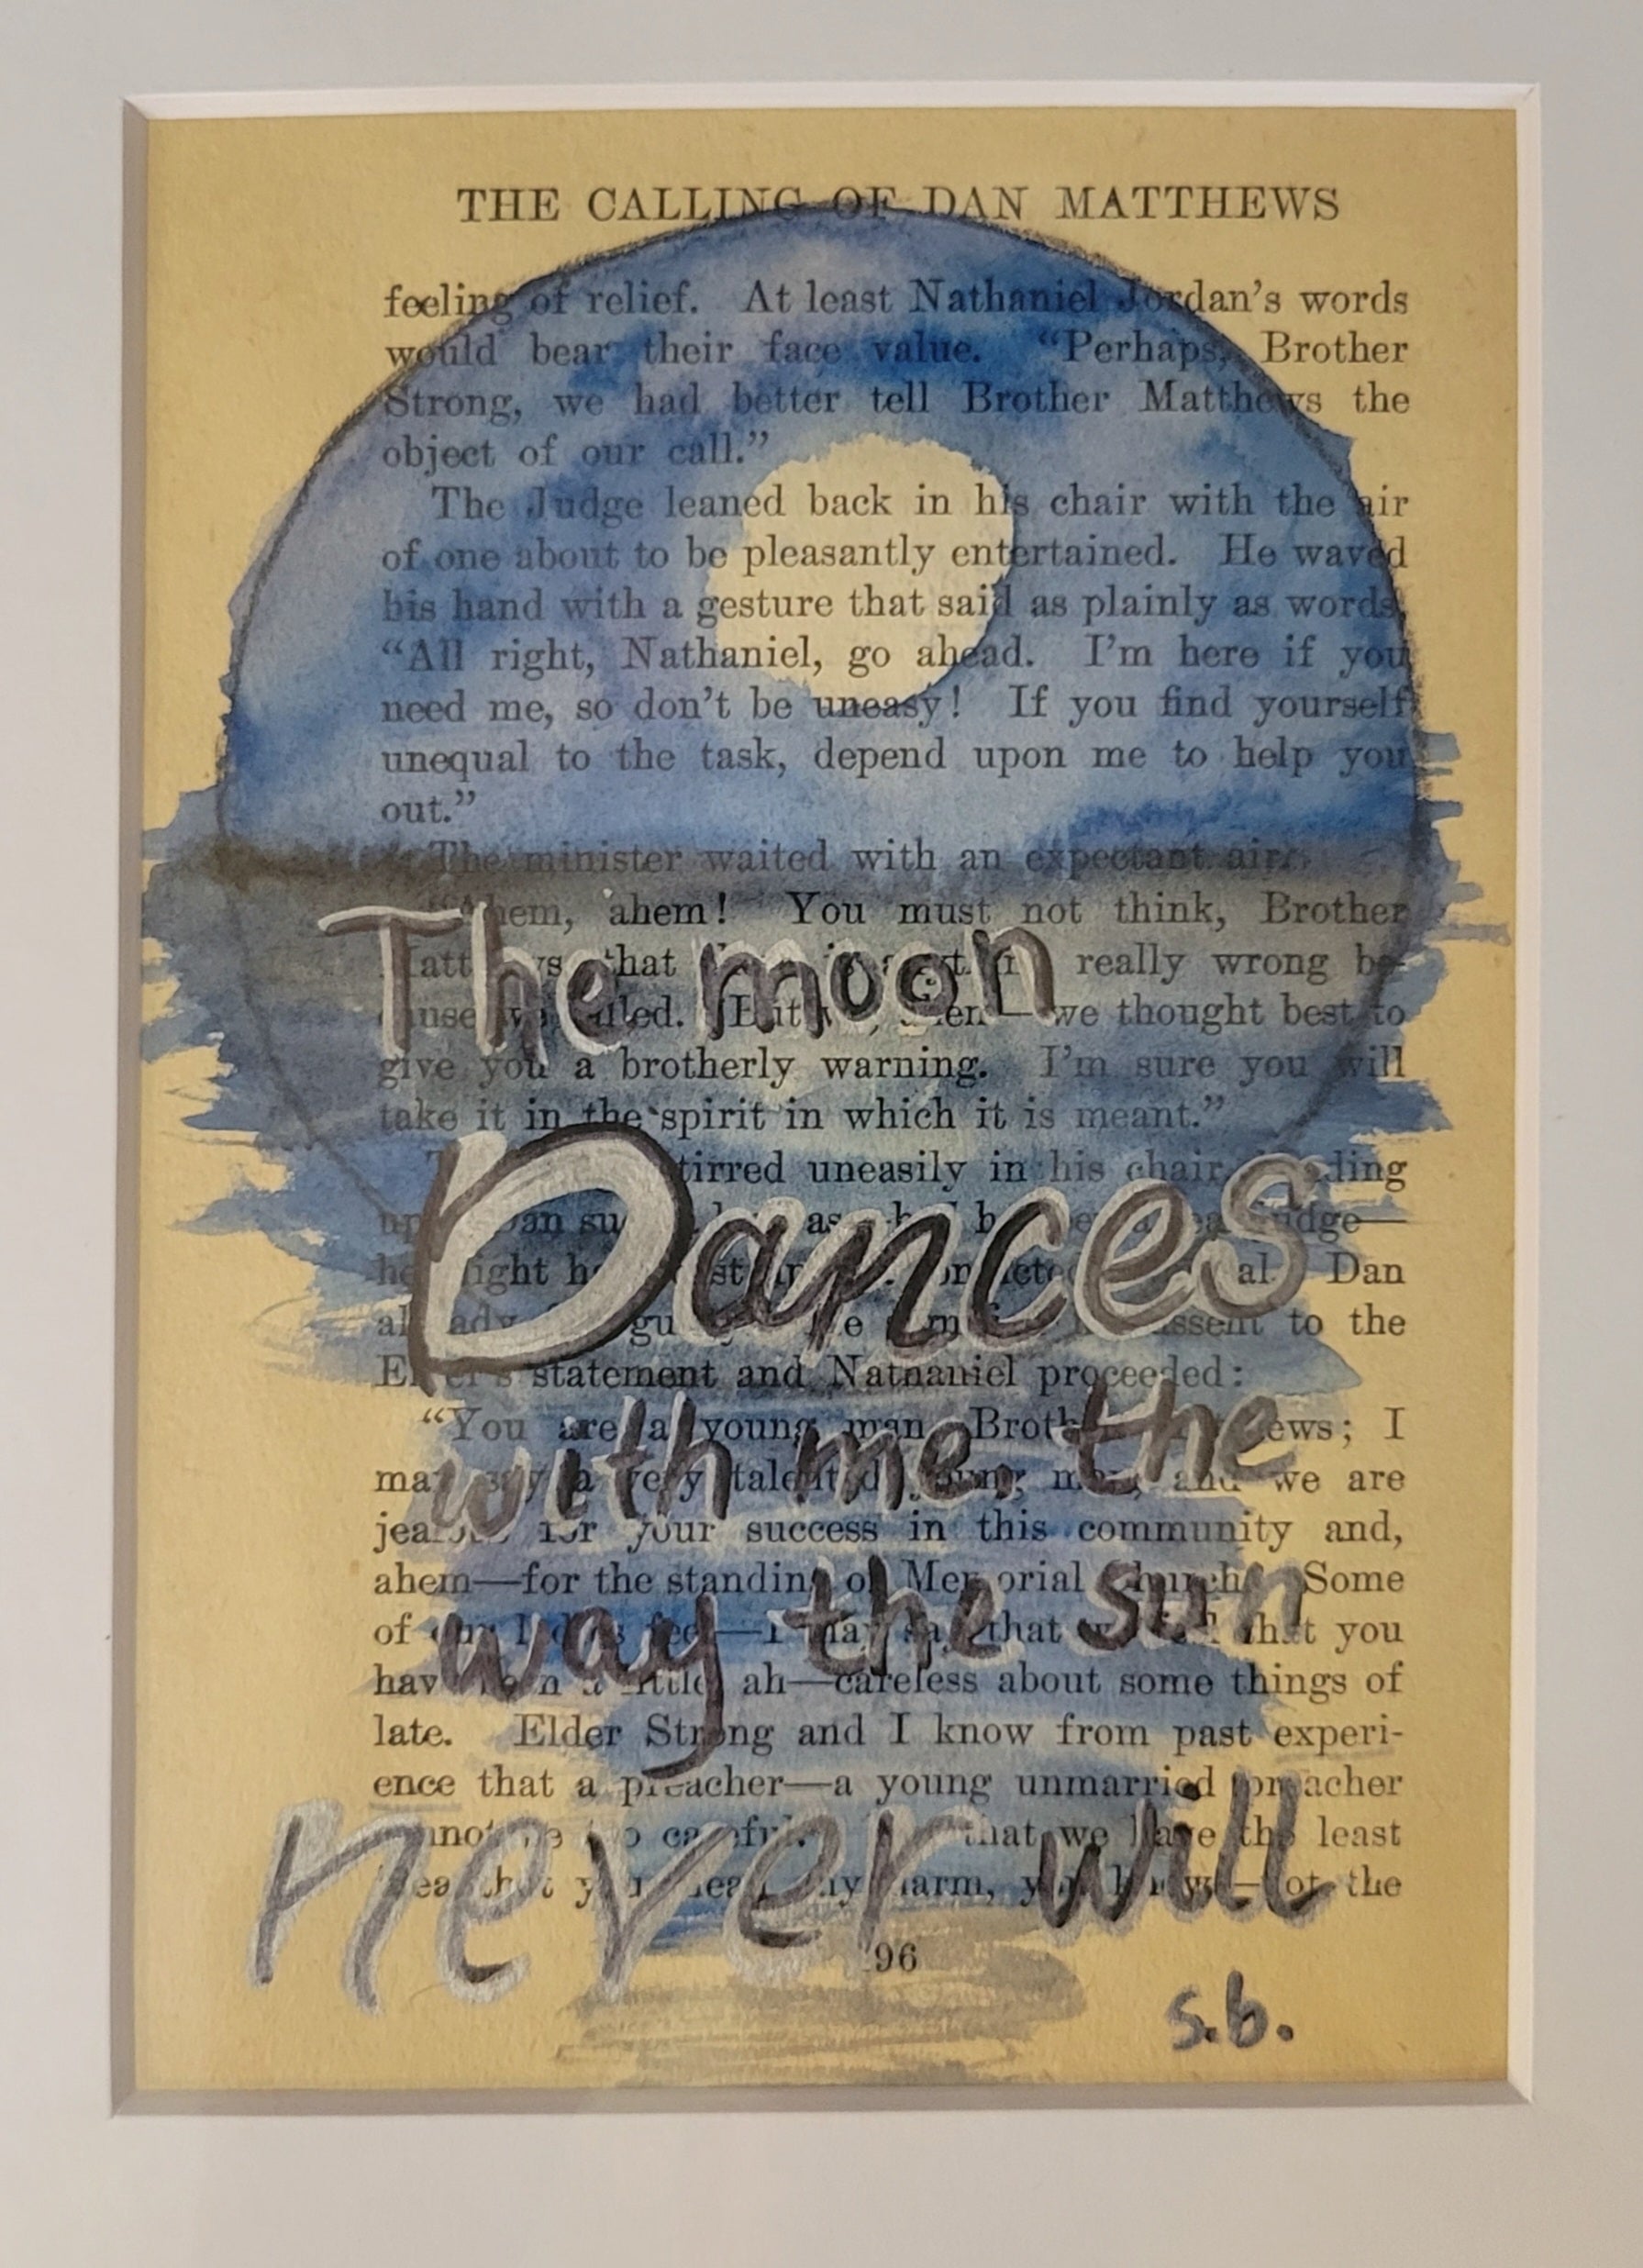 THE CALLING OF DAN MATTHEWS
feeling of relief. At least Nathaniel Jordan's words
would bear their face value. “Perhaps, Brother
Strong, we had better tell Brother Matthews the
object of our call.”
The Judge leaned back in his chair with the air
of one about to be pleasantly entertained. He waved
his hand with a gesture that said as plainly as words,
“All right, Nathaniel, go ahead. I'm here if you
need me, so don't be uneasy! If you find yourself
unequal to the task, depend upon me to help you
out.”
The minister waited with an expectant air.
“Ahem, ahem! You must not think, Brother
that really wrong be-
The moon
we thought best to
give you a brotherly warning. I'm sure you will
take it in the spirit in which it is meant.”
uneasily in his chair,
Dances
Dan
to the
Elder's statement and Nathaniel proceeded:
“You are a young man, Brother Matthews; I
with me, the
may say a very talented young man, and we are
jealous for your success in this community and,
ahem—for the standing of Memorial Church. Some
way the sun
of our ladies feel—I may say that we feel that you
have been a little ah—careless about some things of
late. Elder Strong and I know from past experi-
ence that a preacher—a young unmarried preacher
cannot be too careful. that we have the least
never will
that you harm, you know—not the
96
s.b.